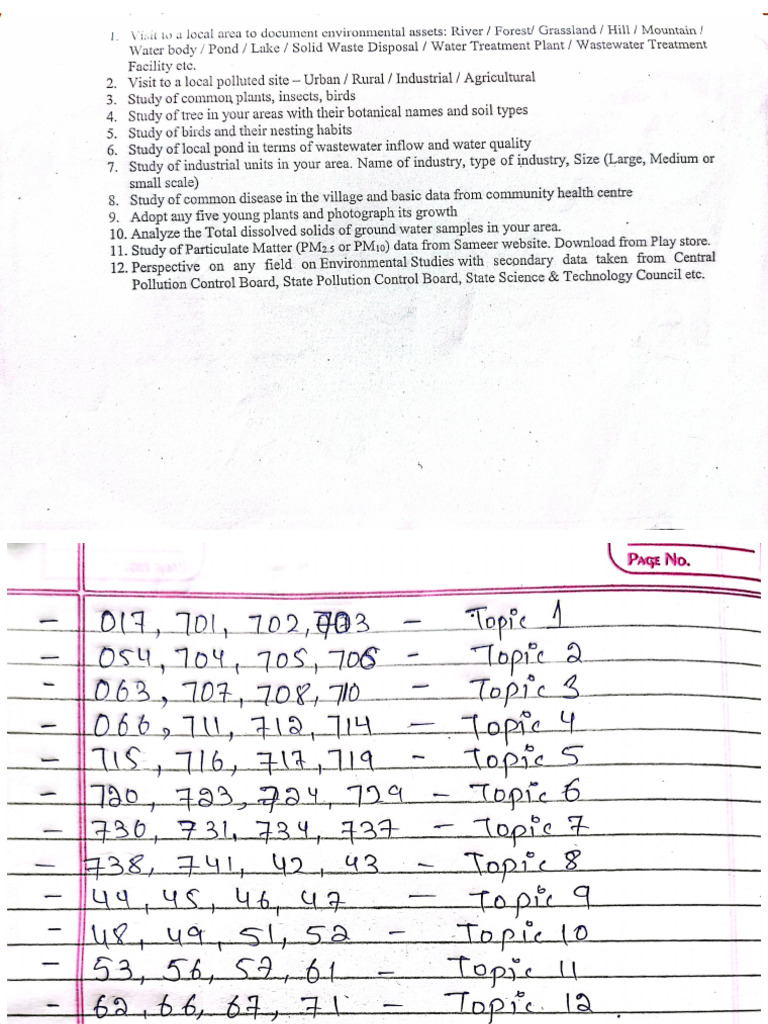 1. Visit to a local area to document environmental assets: River / Forest/ Grassland / Hill / Mountain /
Water body / Pond / Lake / Solid Waste Disposal / Water Treatment Plant / Wastewater Treatment
Facility etc.
2. Visit to a local polluted site – Urban / Rural / Industrial / Agricultural
3. Study of common plants, insects, birds
4. Study of tree in your areas with their botanical names and soil types
5. Study of birds and their nesting habits
6. Study of local pond in terms of wastewater inflow and water quality
7. Study of industrial units in your area. Name of industry, type of industry, Size (Large, Medium or
small scale)
8. Study of common disease in the village and basic data from community health centre
9. Adopt any five young plants and photograph its growth
10. Analyze the Total dissolved solids of ground water samples in your area.
11. Study of Particulate Matter (PM2.5 or PM10) data from Sameer website. Download from Play store.
12. Perspective on any field on Environmental Studies with secondary data taken from Central
Pollution Control Board, State Pollution Control Board, State Science & Technology Council etc.
PAGE NO.
- 017, 701, 702, 703 - Topic 1
- 054, 704, 705, 706 - Topic 2
- 063, 707, 708, 710 - Topic 3
- 066, 711, 712, 714 - Topic 4
- 715, 716, 717, 719 - Topic 5
- 720, 723, 724, 729 - Topic 6
- 730, 731, 734, 737 - Topic 7
- 738, 741, 42, 43 - Topic 8
- 44, 45, 46, 47 - Topic 9
- 48, 49, 51, 52 - Topic 10
- 53, 56, 57, 61 - Topic 11
- 62, 66, 67, 71 - Topic 12